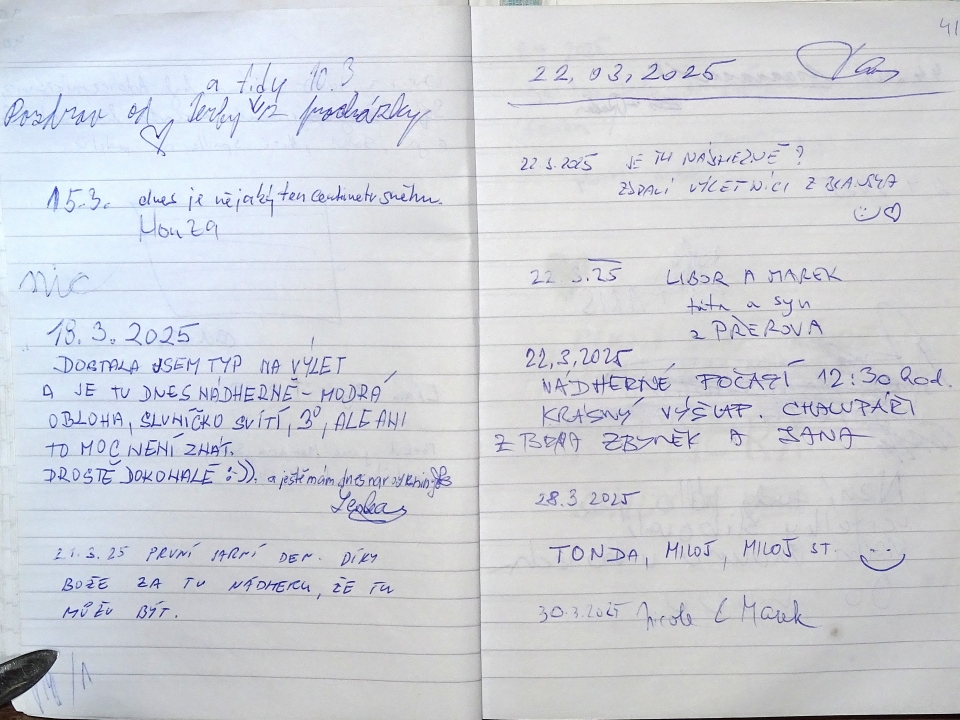 a tidy 10.3
Pozdrav od Terby z procházky
15.3. dnes je nějaký ten centimetr sněhu.
Honza
nic
18.3.2025
DOSTALA JSEM TYP NA VÝLET
A JE TU DNES NÁDHERNĚ - MODRÁ
OBLOHA, SLUNÍČKO SVÍTÍ, 3°, ALE ANI
TO MOC NENÍ ZNÁT.
PROSTĚ DOKONALÉ :)). a ještě mám dnes narozeniny
Lenka
21.3.25 PRVNÍ JARNÍ DEN. DÍKY
BOŽE ZA TU NÁDHERU, ŽE TU
MŮŽU BÝT.
41
22,03,2025
22.3.2025 JE TU NÁDHERNĚ?
ZDALI VÝLETNÍCI Z BLANSKA
22.3.25 LIBOR A MAREK
táta a syn
z PŘEROVA
22,3,2025
NÁDHERNÉ POČASÍ 12:30 hod.
KRÁSNÝ VÝŠLAP. CHALUPÁŘI
Z BRNA ZBYNĚK A JANA
28.3.2025
TONDA, MILOŠ, MILOŠ ST.
30.3.2025 Nicole & Marek